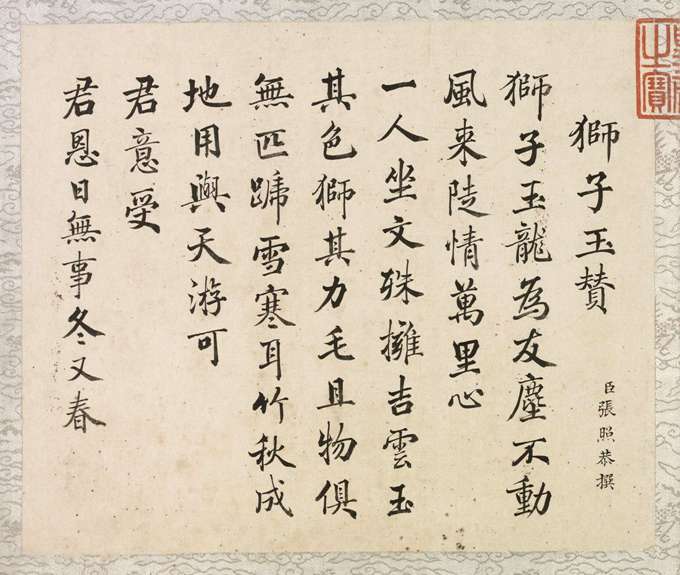 獅子玉賛
臣張照恭撰
獅子玉龍為友塵不動
風来陡情萬里心
一人坐文殊擁吉雲玉
其色獅其力毛且物俱
無匹蹏雪寒耳竹秋成
地用與天游可
君意受
君恩日無事冬又春
之寶